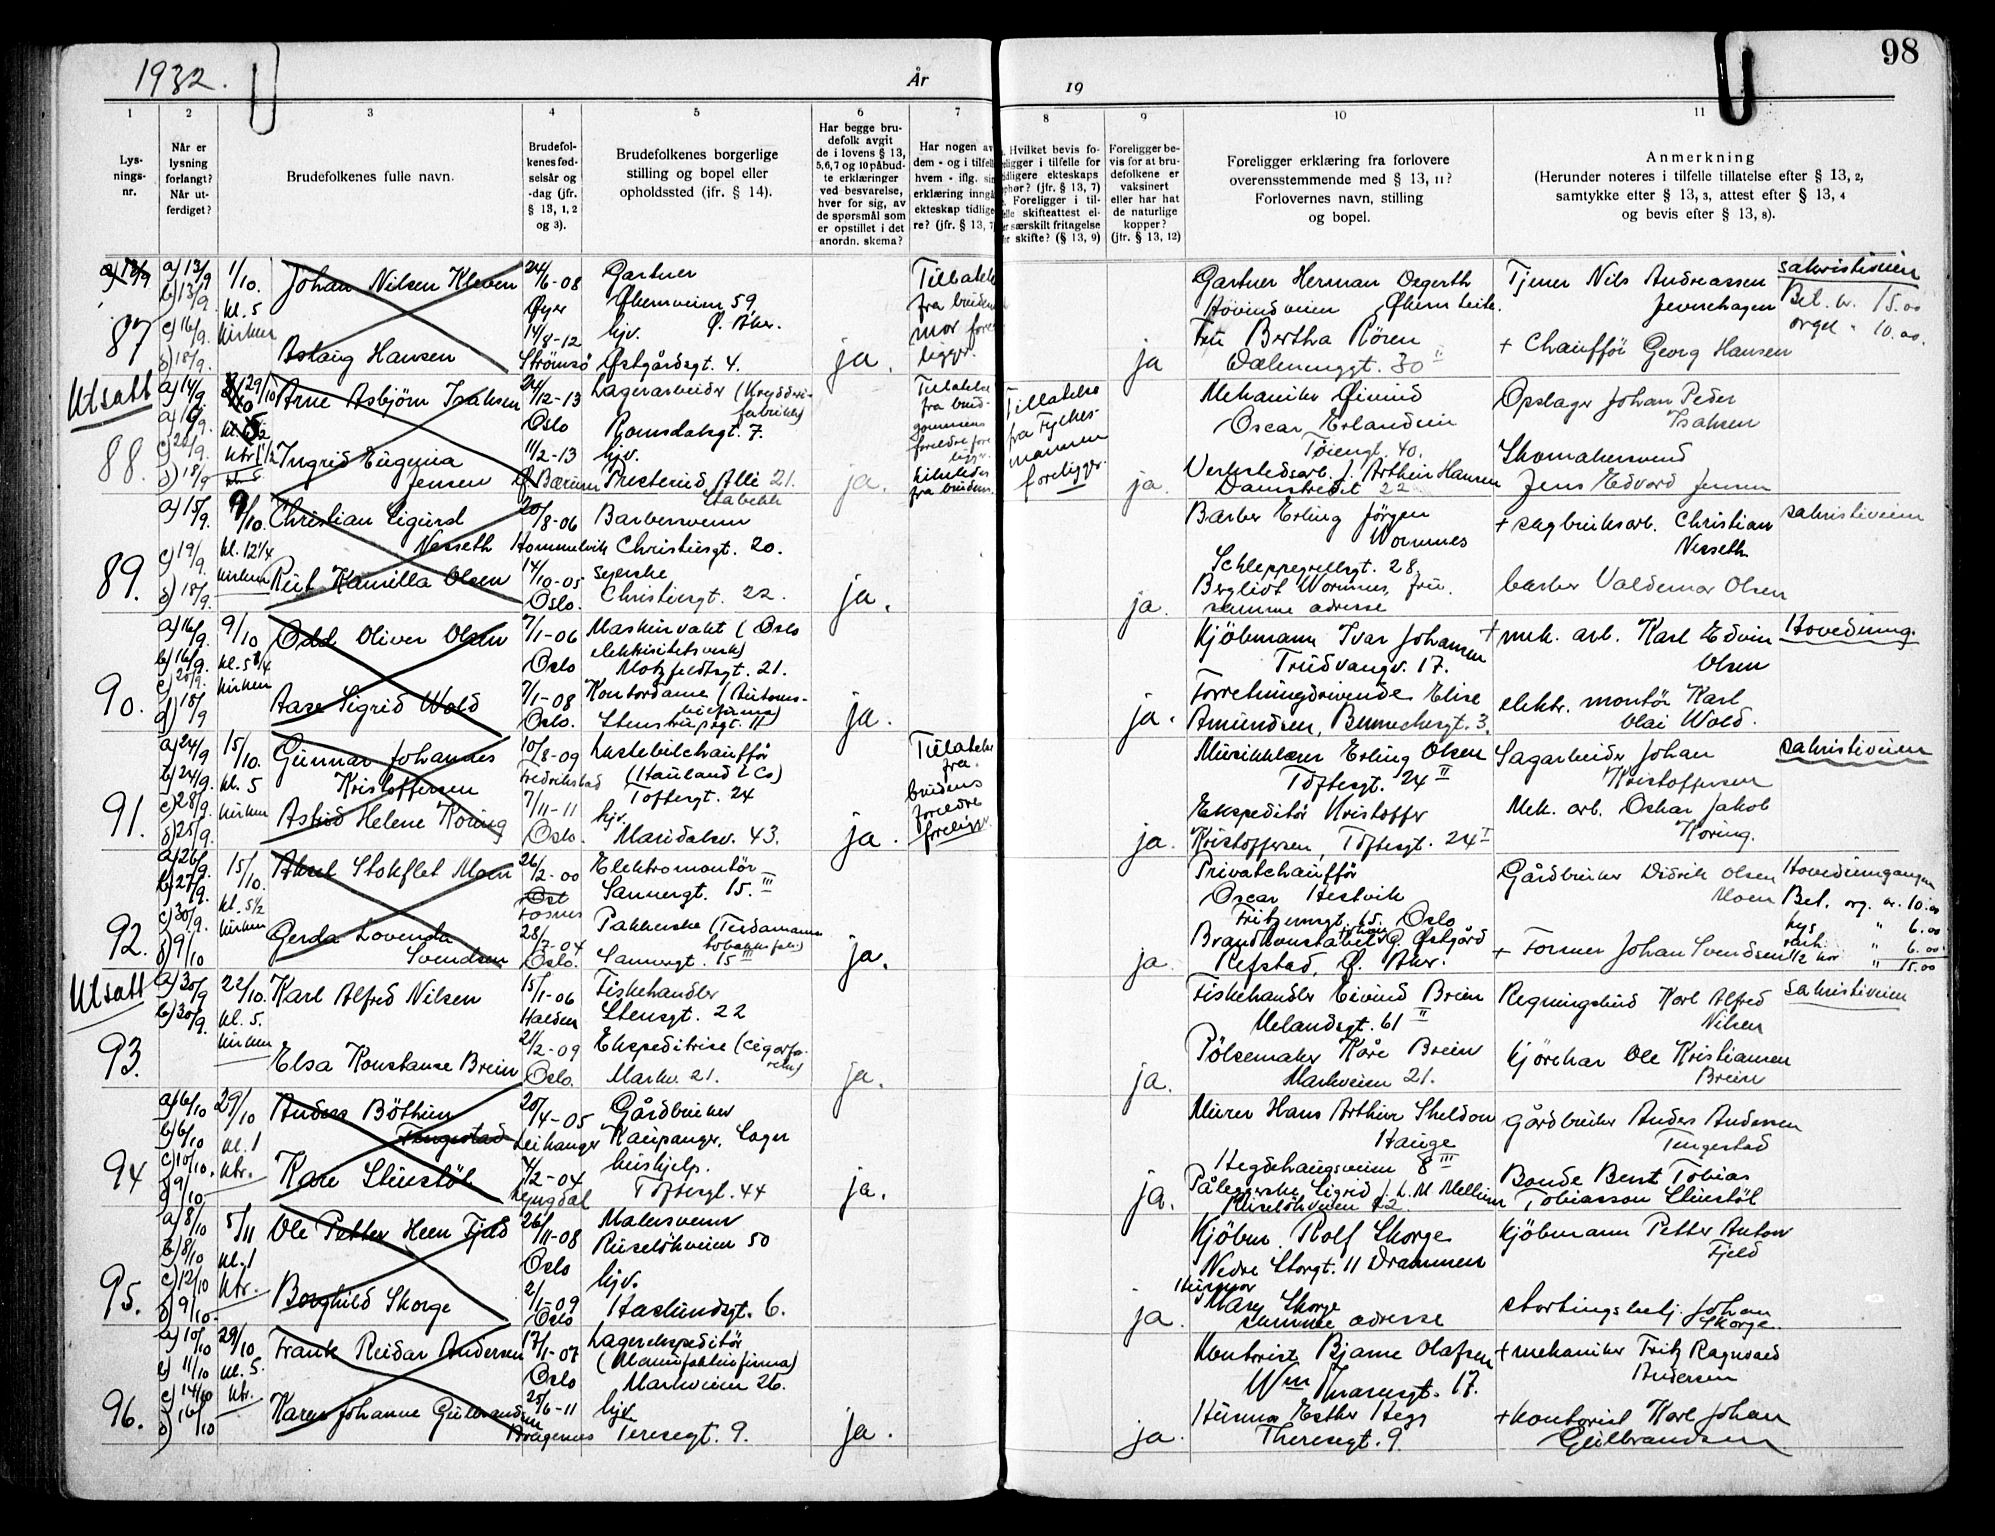 98
1932.
År
19
1
2
3
4
5
6
7
8
9
10
11
Lys-
nings-
nr.
Når er
lysning
forlangt?
Når ut-
ferdiget?
Brudefolkenes fulle navn.
Brudefol-
kenes fød-
selsår og
-dag (jfr.
§ 13, 1, 2
og 3).
Brudefolkenes borgerlige
stilling og bopel eller
opholdssted (ifr. § 14).
Har begge bru-
defolk avgit
de i lovens § 13,
5,6,7 og 10 påbud-
te erklæringer
ved besvarelse,
hver for sig, av
de spørsmål som
er opstillet i det
anordn. skema?
Har nogen av
dem - og i tilfelle
hvem - iflg. sin
erklæring inngå
ekteskap tidlige
re? (jfr. § 13, 7
Hvilket bevis fo-
religger i tilfelle for
tidligere ekteskaps
ophør? (jfr. § 13, 7)
Foreligger i til-
felle skifteattest el-
ler særskilt fritagelse
for skifte? (§ 13, 9)
Foreligger be-
vis for at bru-
defolkene er
vaksinert
eller har hat
de naturlige
kopper?
(jfr. § 13, 12)
Foreligger erklæring fra forlovere
overensstemmende med § 13, 11?
Forlovernes navn, stilling
og bopel.
Anmerkning
(Herunder noteres i tilfelle tillatelse efter § 13, 2,
samtykke efter § 13, 3, attest efter § 13, 4
og bevis efter § 13, 8).
87
a) 13/9
b) 13/9.
c) 16/9.
d) 18/9.
1/10.
kl. 5
kirken
Johan Nilsen Kleven
Aslaug Hansen
24/6-08
Øyer
14/8-12
Strømsø
Gartner
Økernveien 59,
Ø. Aker.
hjv.
Østgårdsgt. 4.
ja.
Tillatelse
fra brudens
mor fore
ligger.
ja
Gartner Herman Oegerth
Hovindveien
Fru Bertha Røren
Dælenenggt. 30 II
Tjener Nils Andreassen
Jevnehagen
+ Chauffør Georg Hansen
sakristiveien
Bet. kr. 15.00
orgel " 10.00.
Utsatt
88.
a) 14/9.
d) 18/9
29/10
Arne Asbjørn Isaksen
Ingrid Eugenia
Jensen
24/12-13
Oslo
11/2-13
Ø. Bærum
Lagerarbeider (Krydderi-
fabrikk)
Romsdalsgt. 7.
hjv.
Presterud Alle 21.
Stabekk
ja.
Tillatelse
fra brud-
gommens
foreldre fore
ligger
likeledes
fra brudens.
Tillatelse
fra Fylkes-
mannen
foreligger.
ja.
Mekaniker Øivind
Oscar Erlandsen
Tøiengt. 40.
Verkstedsarb. J. Arthur Hansen
Damstredet 22
Opslager Johan Peder
Isaksen
Skomakersvend
Jens Edvard Jensen
89.
a) 15/9.
c) 19/9.
d) 18/9.
9/10.
kl. 12 1/4
kirken
Christian Sigurd
Nesseth
Rut Kamilla Olsen
20/8-06
Hommelvik
14/10-05
Oslo.
Barbersvenn
Christiesgt. 20.
syerske
Christiesgt. 22.
ja.
ja.
Barber Erling Jørgen
Wormnes
Schleppegrellsgt. 28.
Bergliot Wormnes, fru.
samme adresse
+ sagbruksarb. Christian
Nesseth
barber Valdemar Olsen
sakristiveien
90.
a) 16/9.
b) 16/9.
c) 20/9.
d) 18/9
9/10
kl. 5 3/4
kirken
Odd Oliver Olsen
Aase Sigrid Wold
7/1-06
Oslo
7/1-08
Oslo.
Maskinvakt (Oslo
elektrisitetsverk)
Motzfeldtsgt. 21.
Kontordame (Automo-
bilfirma)
Stenstrupsgt. 11
ja.
ja.
Kjøbmann Ivar Johansen
Trudvangv. 17.
Forretningdrivende Elise
Amundsen, Bennechesgt. 3.
+ mek. arb. Karl Edvin
Olsen
elektr. montør Karl
Olai Wold.
Hovedinng.
91.
a) 24/9
b) 24/9.
c) 28/9.
d) 25/9.
15/10.
kl. 5
kirken
Gunnar Johannes
Kristoffersen
Astrid Helene Koring
10/8-09
Fredrikstad
7/11-11
Oslo.
Lastebilchauffør
(Hauland & Co)
Toftesgt. 24
hjv.
Maridalsv. 43.
ja.
Tillatelse
fra
brudens
foreldre
foreligger.
ja.
Musikklærer Erling Olsen
Toftesgt. 24 II
Ekspeditør Kristoffer
Kristoffersen, Toftesgt. 24 I
Sagarbeider Johan
Kristoffersen
Mek. arb. Oskar Jakob
Koring.
sakristiveien
92.
a) 26/9
b) 27/9.
c) 30/9.
d) 9/10
15/10.
kl. 5 1/2
kirken
Aksel Stokflet Moen
Gerda Lovenda
Svendsen
26/2-00
Fosnes
28/2-04
Oslo.
Elektromontør
Sannergt. 15. III
Pakkerske (Tiedemanns
tobakkfabr.)
Sannergt. 15 III
ja.
ja
Privatchauffør
Oscar Hestvik
Fritznersgt. 15. Oslo
Brandkonstabel Johan G. Østgård
Refstad, Ø. Aker.
Gårdbruker Didrik Olsen
Moen
+ Former Johan Svendsen
Hovedinngangen
Bet. org. kr. 10.00
lys " 6.00
" 6.00
1/2 kor " 15.00
Utsatt
93.
a) 30/9
b) 30/9.
22/10.
kl. 5.
kirken
Karl Alfred Nilsen
Elsa Konstanse Breien
15/1-06
Halden
21/2-09
Oslo.
Fiskehandler
Stensgt. 22
Ekspeditrise (cigarfo-
retn)
Markv. 21.
ja.
ja.
Fiskehandler Eivind Breien
Uelandsgt. 61 II
Pølsemaker Kåre Breien
Markveien 21.
Regningsbud Karl Alfred
Nilsen
kjørekar Ole Kristiansen
Breien
sakristiveien
94
a) 6/10
b) 6/10
c) 10/10.
d) 9/10
29/10
kl. 1
ktr.
Anders Bøthun
Tengestad
Kare Stuestøl
20/4-05
Leikanger
4/2-04
Lyngdal
Gårdbruker
Kaupanger, Sogn
hushjelp.
Toftesgt. 44
ja.
ja.
Murer Hans Arthur Sheldon
Hauge
Hegdehaugsveien 8 III
Gårdbruker Anders Andersen
Tengestad
Bonde Bent Tobias
Tobiasson Stuestøl
95.
a) 8/10
b) 8/10
c) 12/10
d) 9/10.
5/11
kl. 1
ktr.
Ole Petter Heen Fjeld
Borghild Skorge
26/11-08
Oslo
2/1-09
Oslo
Malersvenn
Ruseløkveien 50
hjv.
Haslundsgt. 6.
ja.
Kjøbm. Rolf Skorge
Nedre Storgt. 11 Drammen
Husmor
Mary Skorge
samme adresse
Kjøbmann Petter Anton
Fjeld
stortingsbetj. Johan
Skorge.
96.
a) 10/10
b) 11/10
c) 14/10
d) 16/10
29/10
kl. 5.
ktr.
Frank Reidar Andersen
Karen Johanne Gulbrandsen
17/1-07
Oslo
25/6-11
Bragernes
Lagerekspeditør
(Manufakturfirma)
Markveien 26.
hjv.
Teresegt. 9.
ja.
ja.
Kontorist Bjarne Olafsen
Wm Thranesgt. 17.
Husmor Esther Hegg
Theresegt. 9
+ mekaniker Fritz Ragnvald
Andersen
+ kontorist Karl Johan
Gulbrandsen